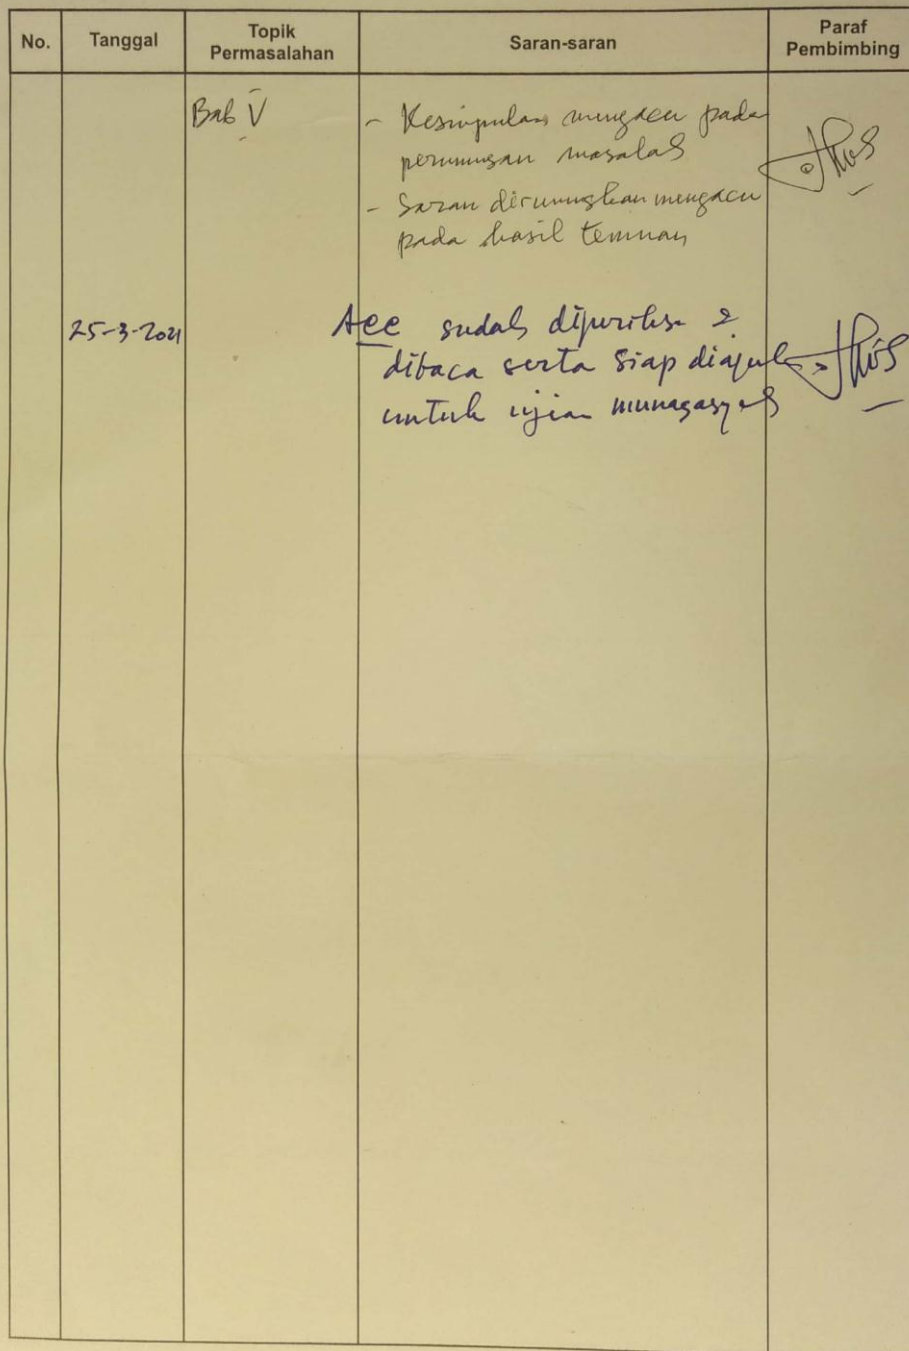 No. Tanggal Topik Permasalahan Saran-saran Paraf Pembimbing
Bab V - Kesimpulan mengacu pada
perumusan masalah
- Saran dirumuskan mengacu
pada hasil temuan
25-3-2021 Acc sudah diperiksa &
dibaca serta siap diajukan
untuk ujian munaqasyah